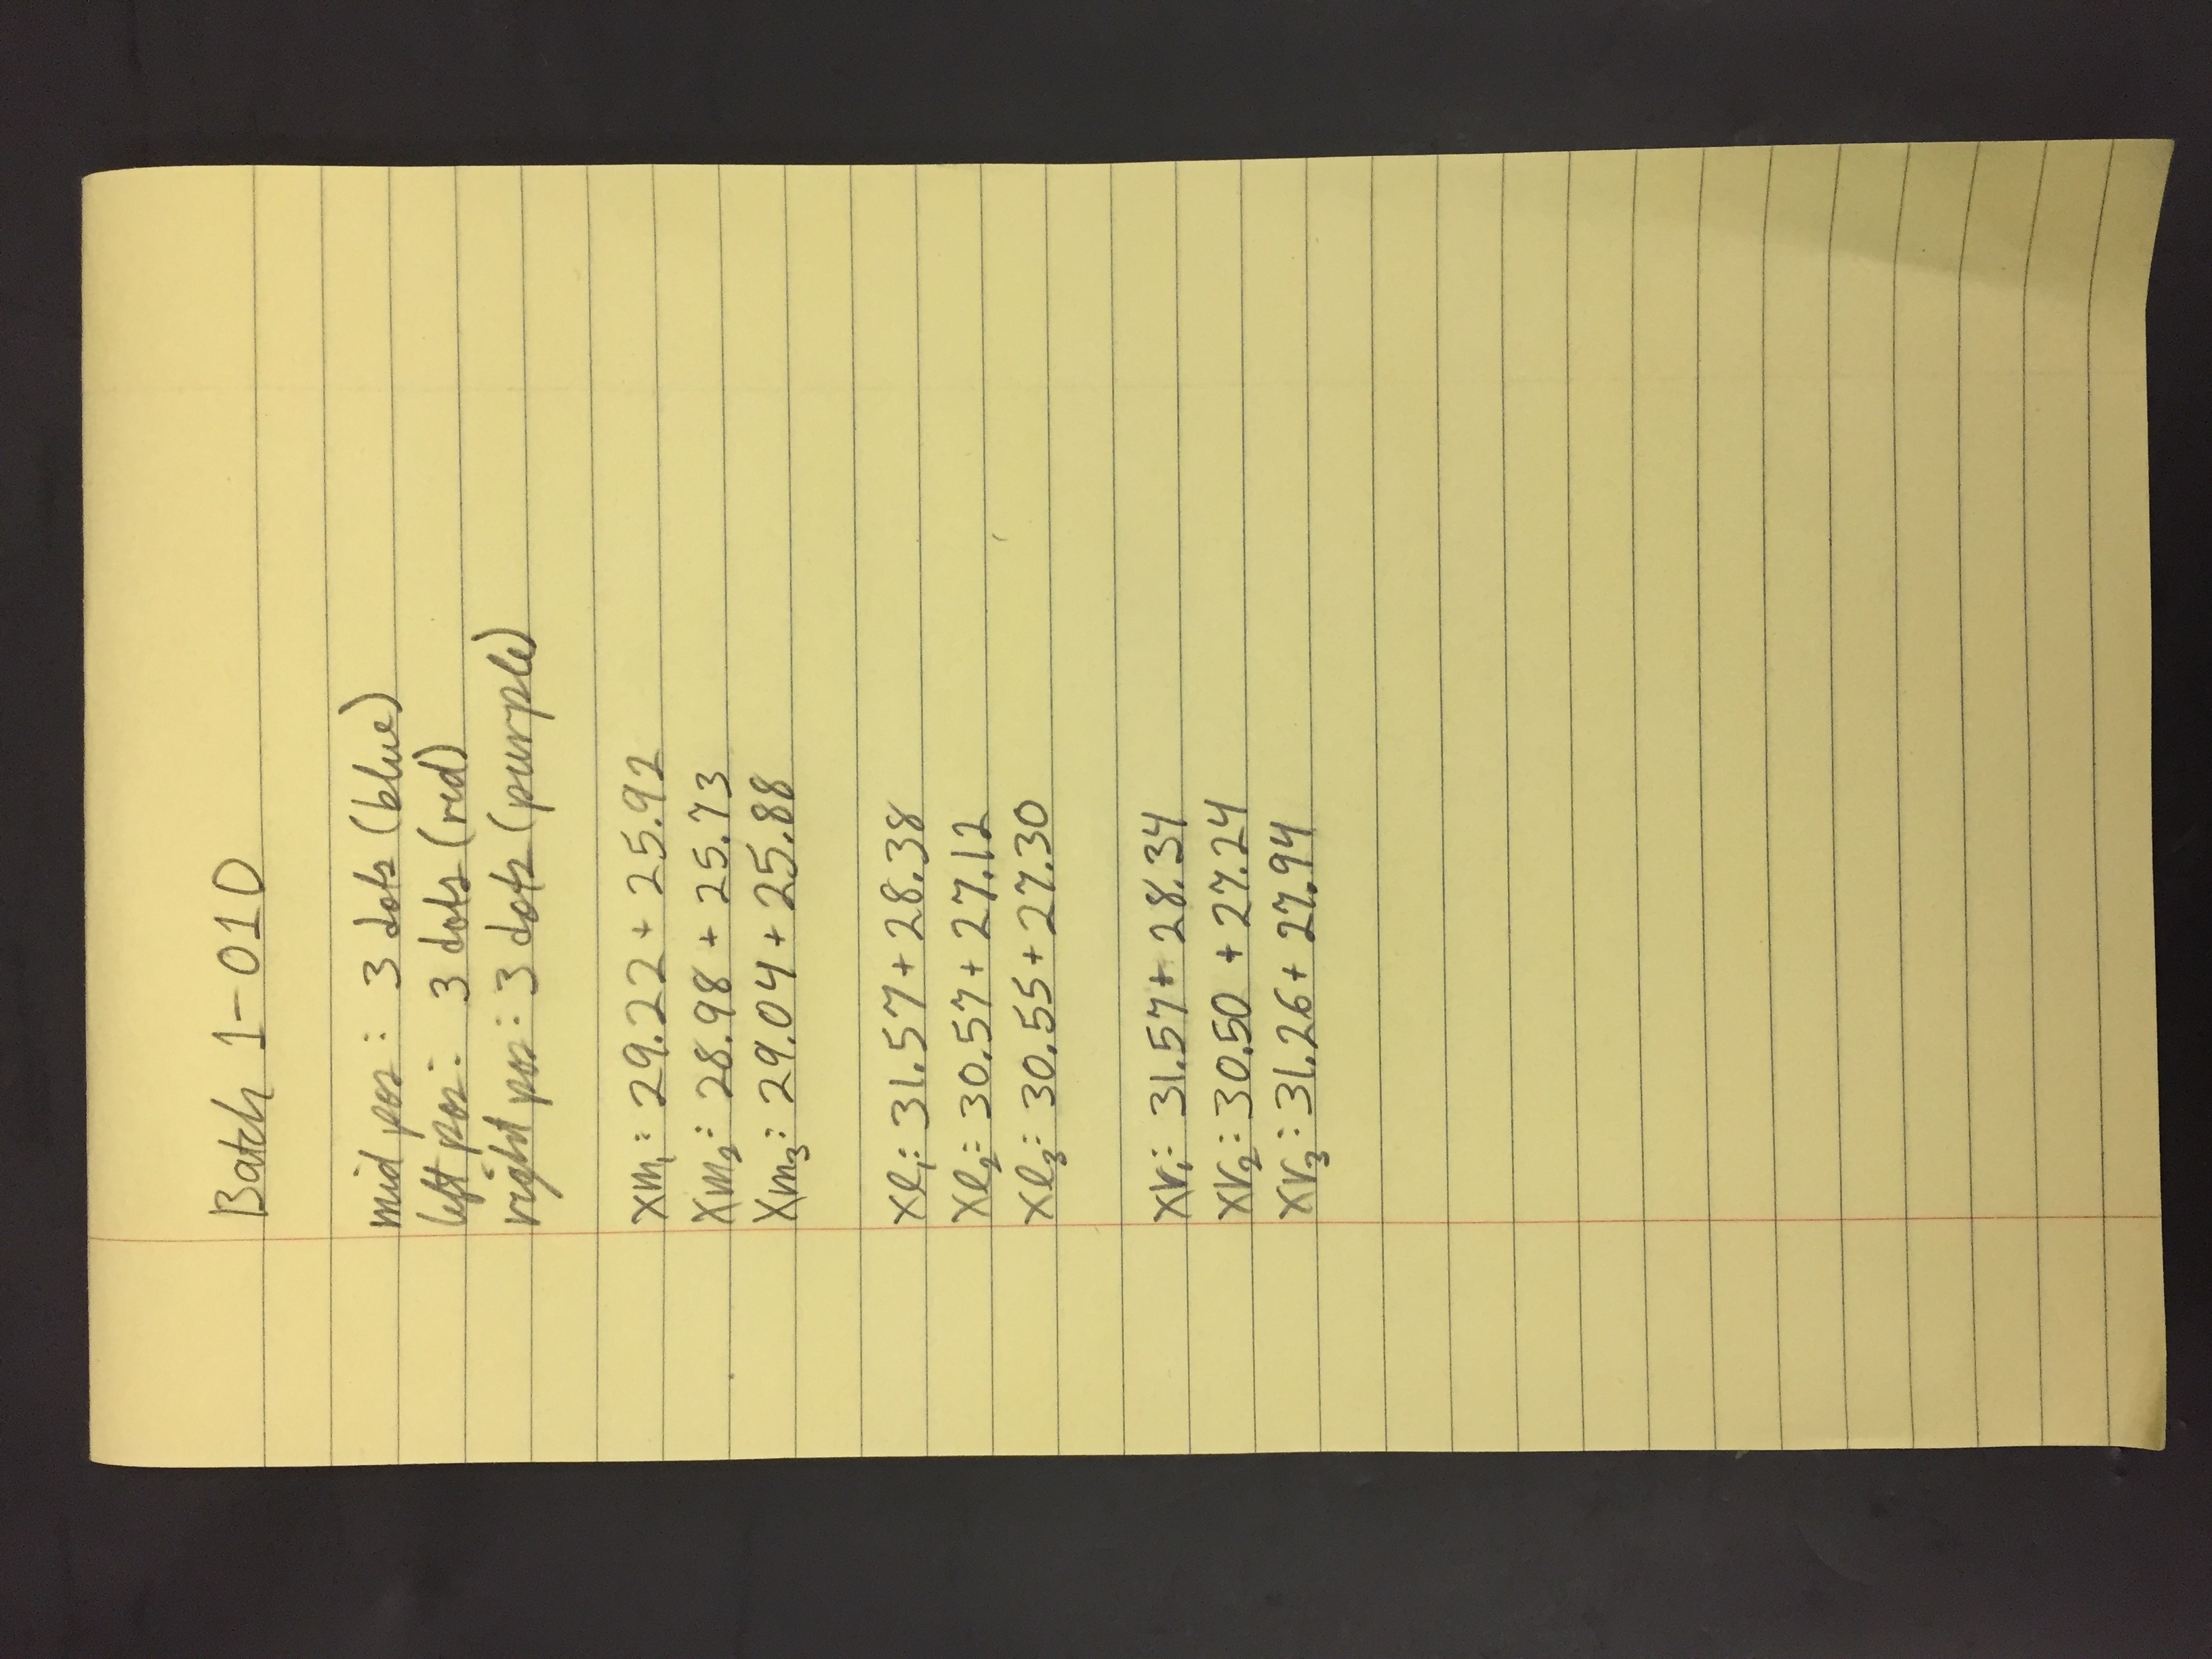 Batch 1-010
mid pos: 3 dots (blue)
left pos: 3 dots (red)
right pos: 3 dots (purple)
xm₁: 29.22 + 25.92
xm₂: 28.98 + 25.73
xm₃: 29.04 + 25.88
xl₁: 31.57 + 28.38
xl₂: 30.57 + 27.12
xl₃: 30.55 + 27.30
xr₁: 31.57 + 28.34
xr₂: 30.50 + 27.24
xr₃: 31.26 + 27.94